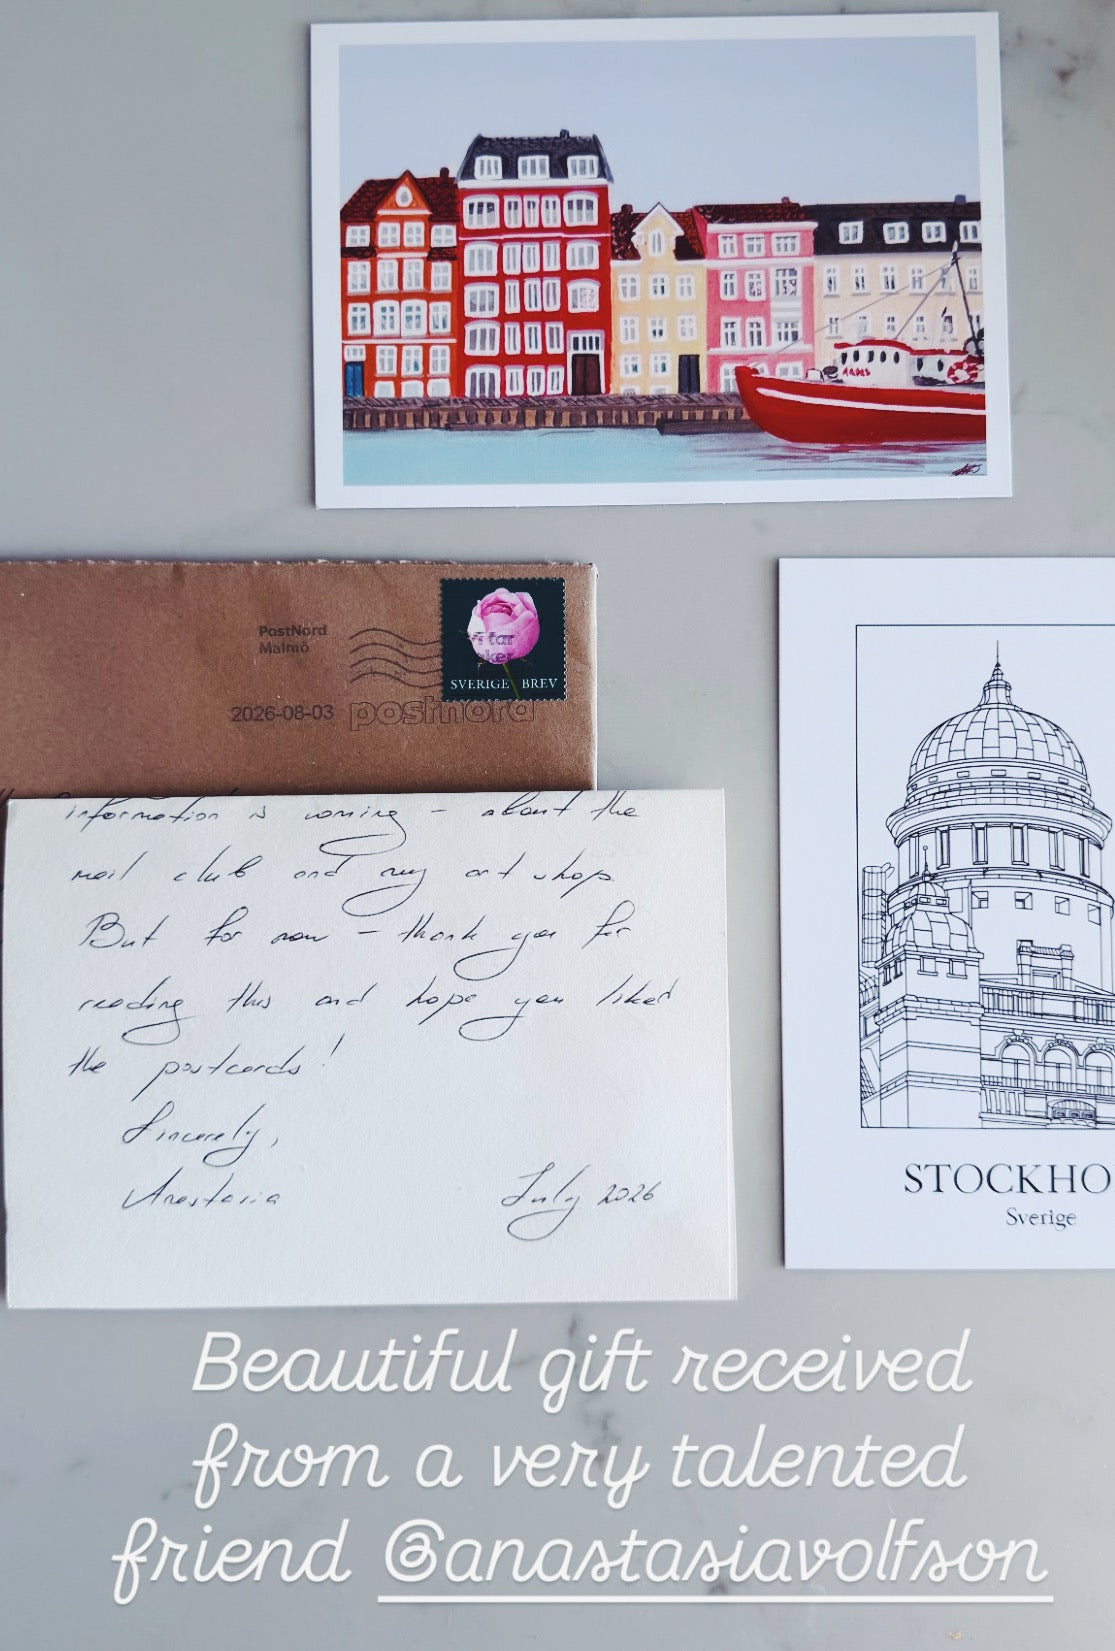 PostNord
Malmö
SVERIGE BREV
2026-08-03
postnord
information is coming – about the
mail club and my art shop.
But for now – thank you for
reading this and hope you liked
the postcards!
Sincerely,
Anastasia
July 2026
STOCKHO
Sverige
Beautiful gift received
from a very talented
friend @anastasiavolfson